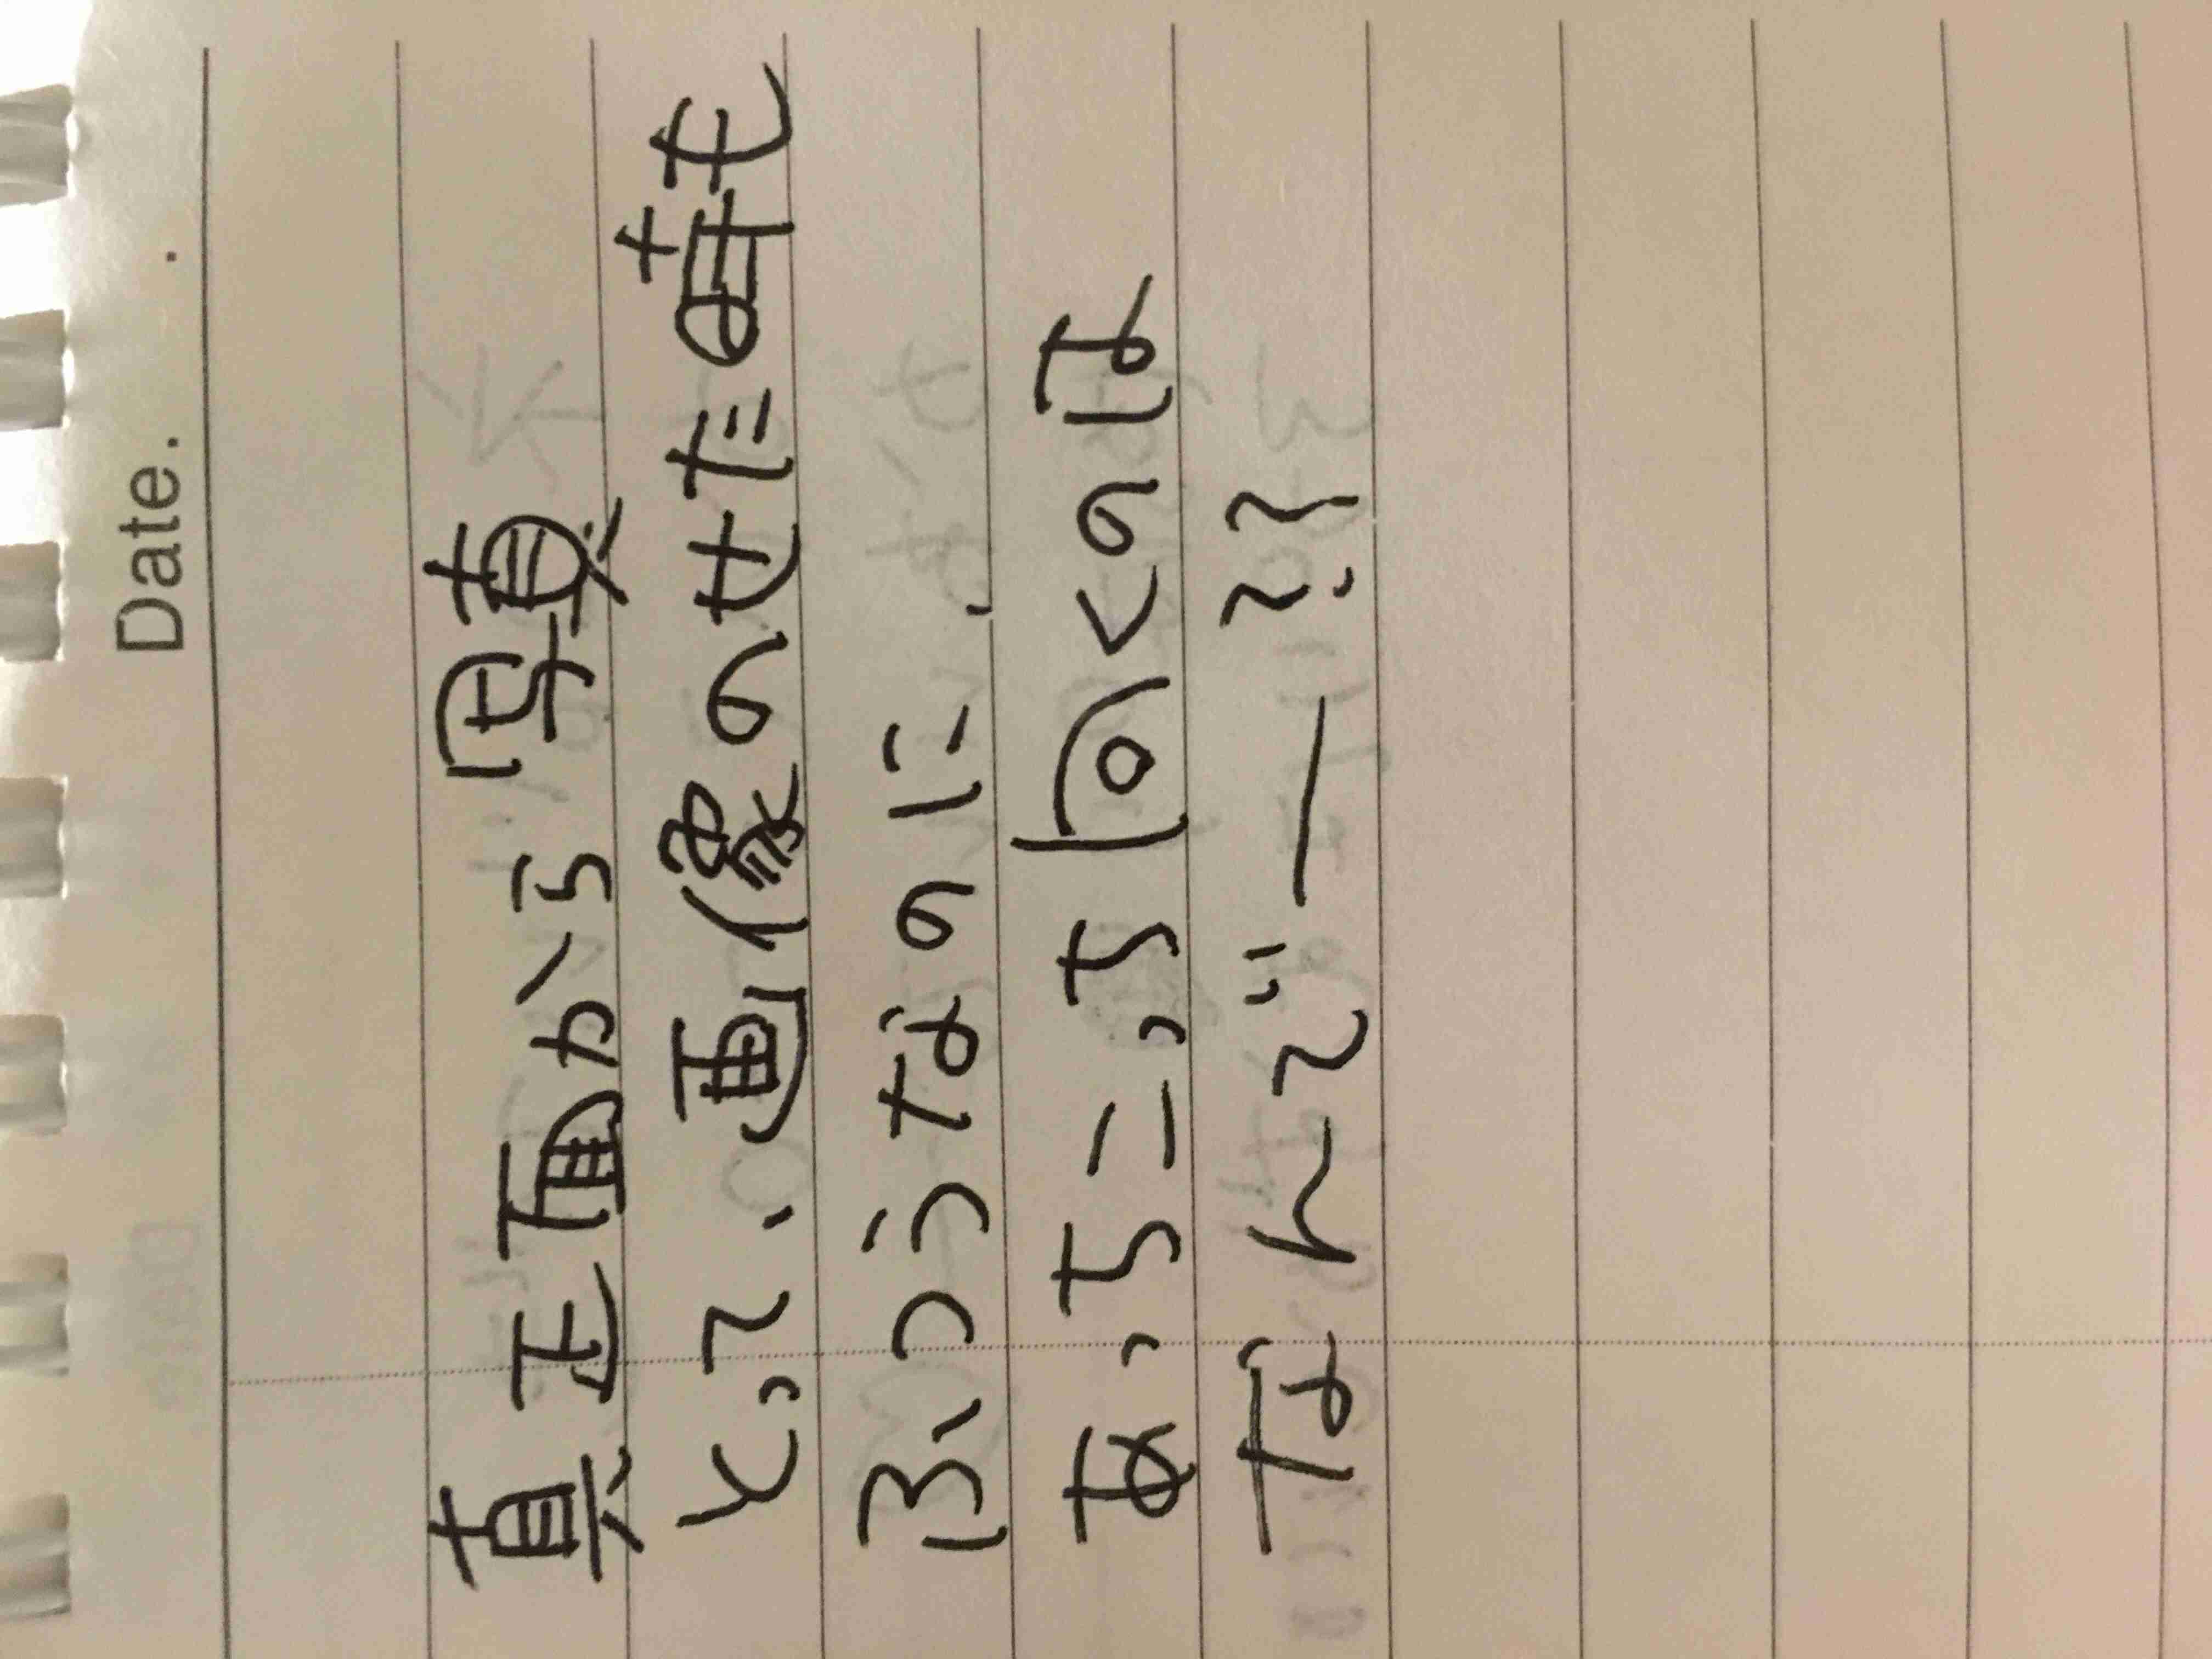 Date. .
真正面から写真
とって、画像のせた時も
ふつうなのに、
あっちこっち向くのは
なんでー??